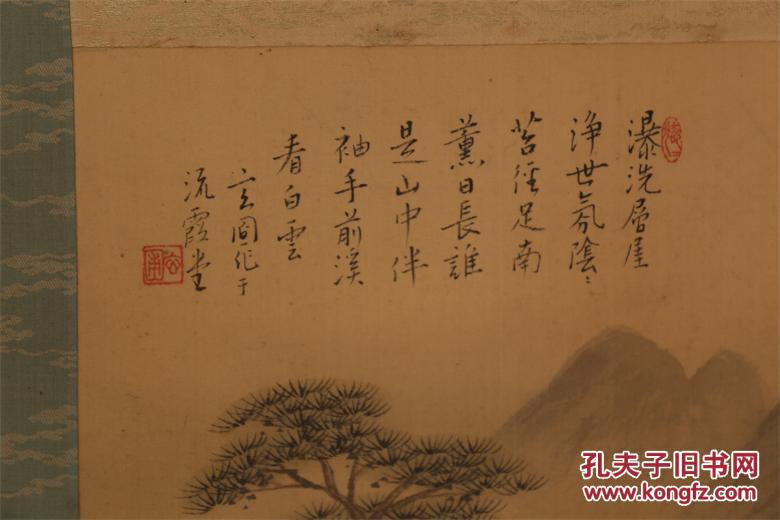 瀑洗層崖
浄世氛陰〻
苔徑足南
薰日長誰
是山中伴
袖手前溪
看白雲
玄圃作于
流霞堂
孔夫子旧书网
www.kongfz.com